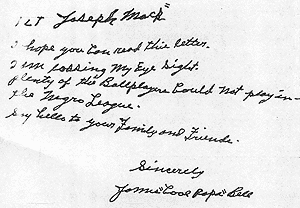 1 LT Joseph Mack"
I hope you can read this letter.
I am lossing my Eye Sight
plenty of the Ballplayers Could Not play in
the Negro League.
Say hello to your Family and Friends.
Sincerely
James "Cool Papa" Bell